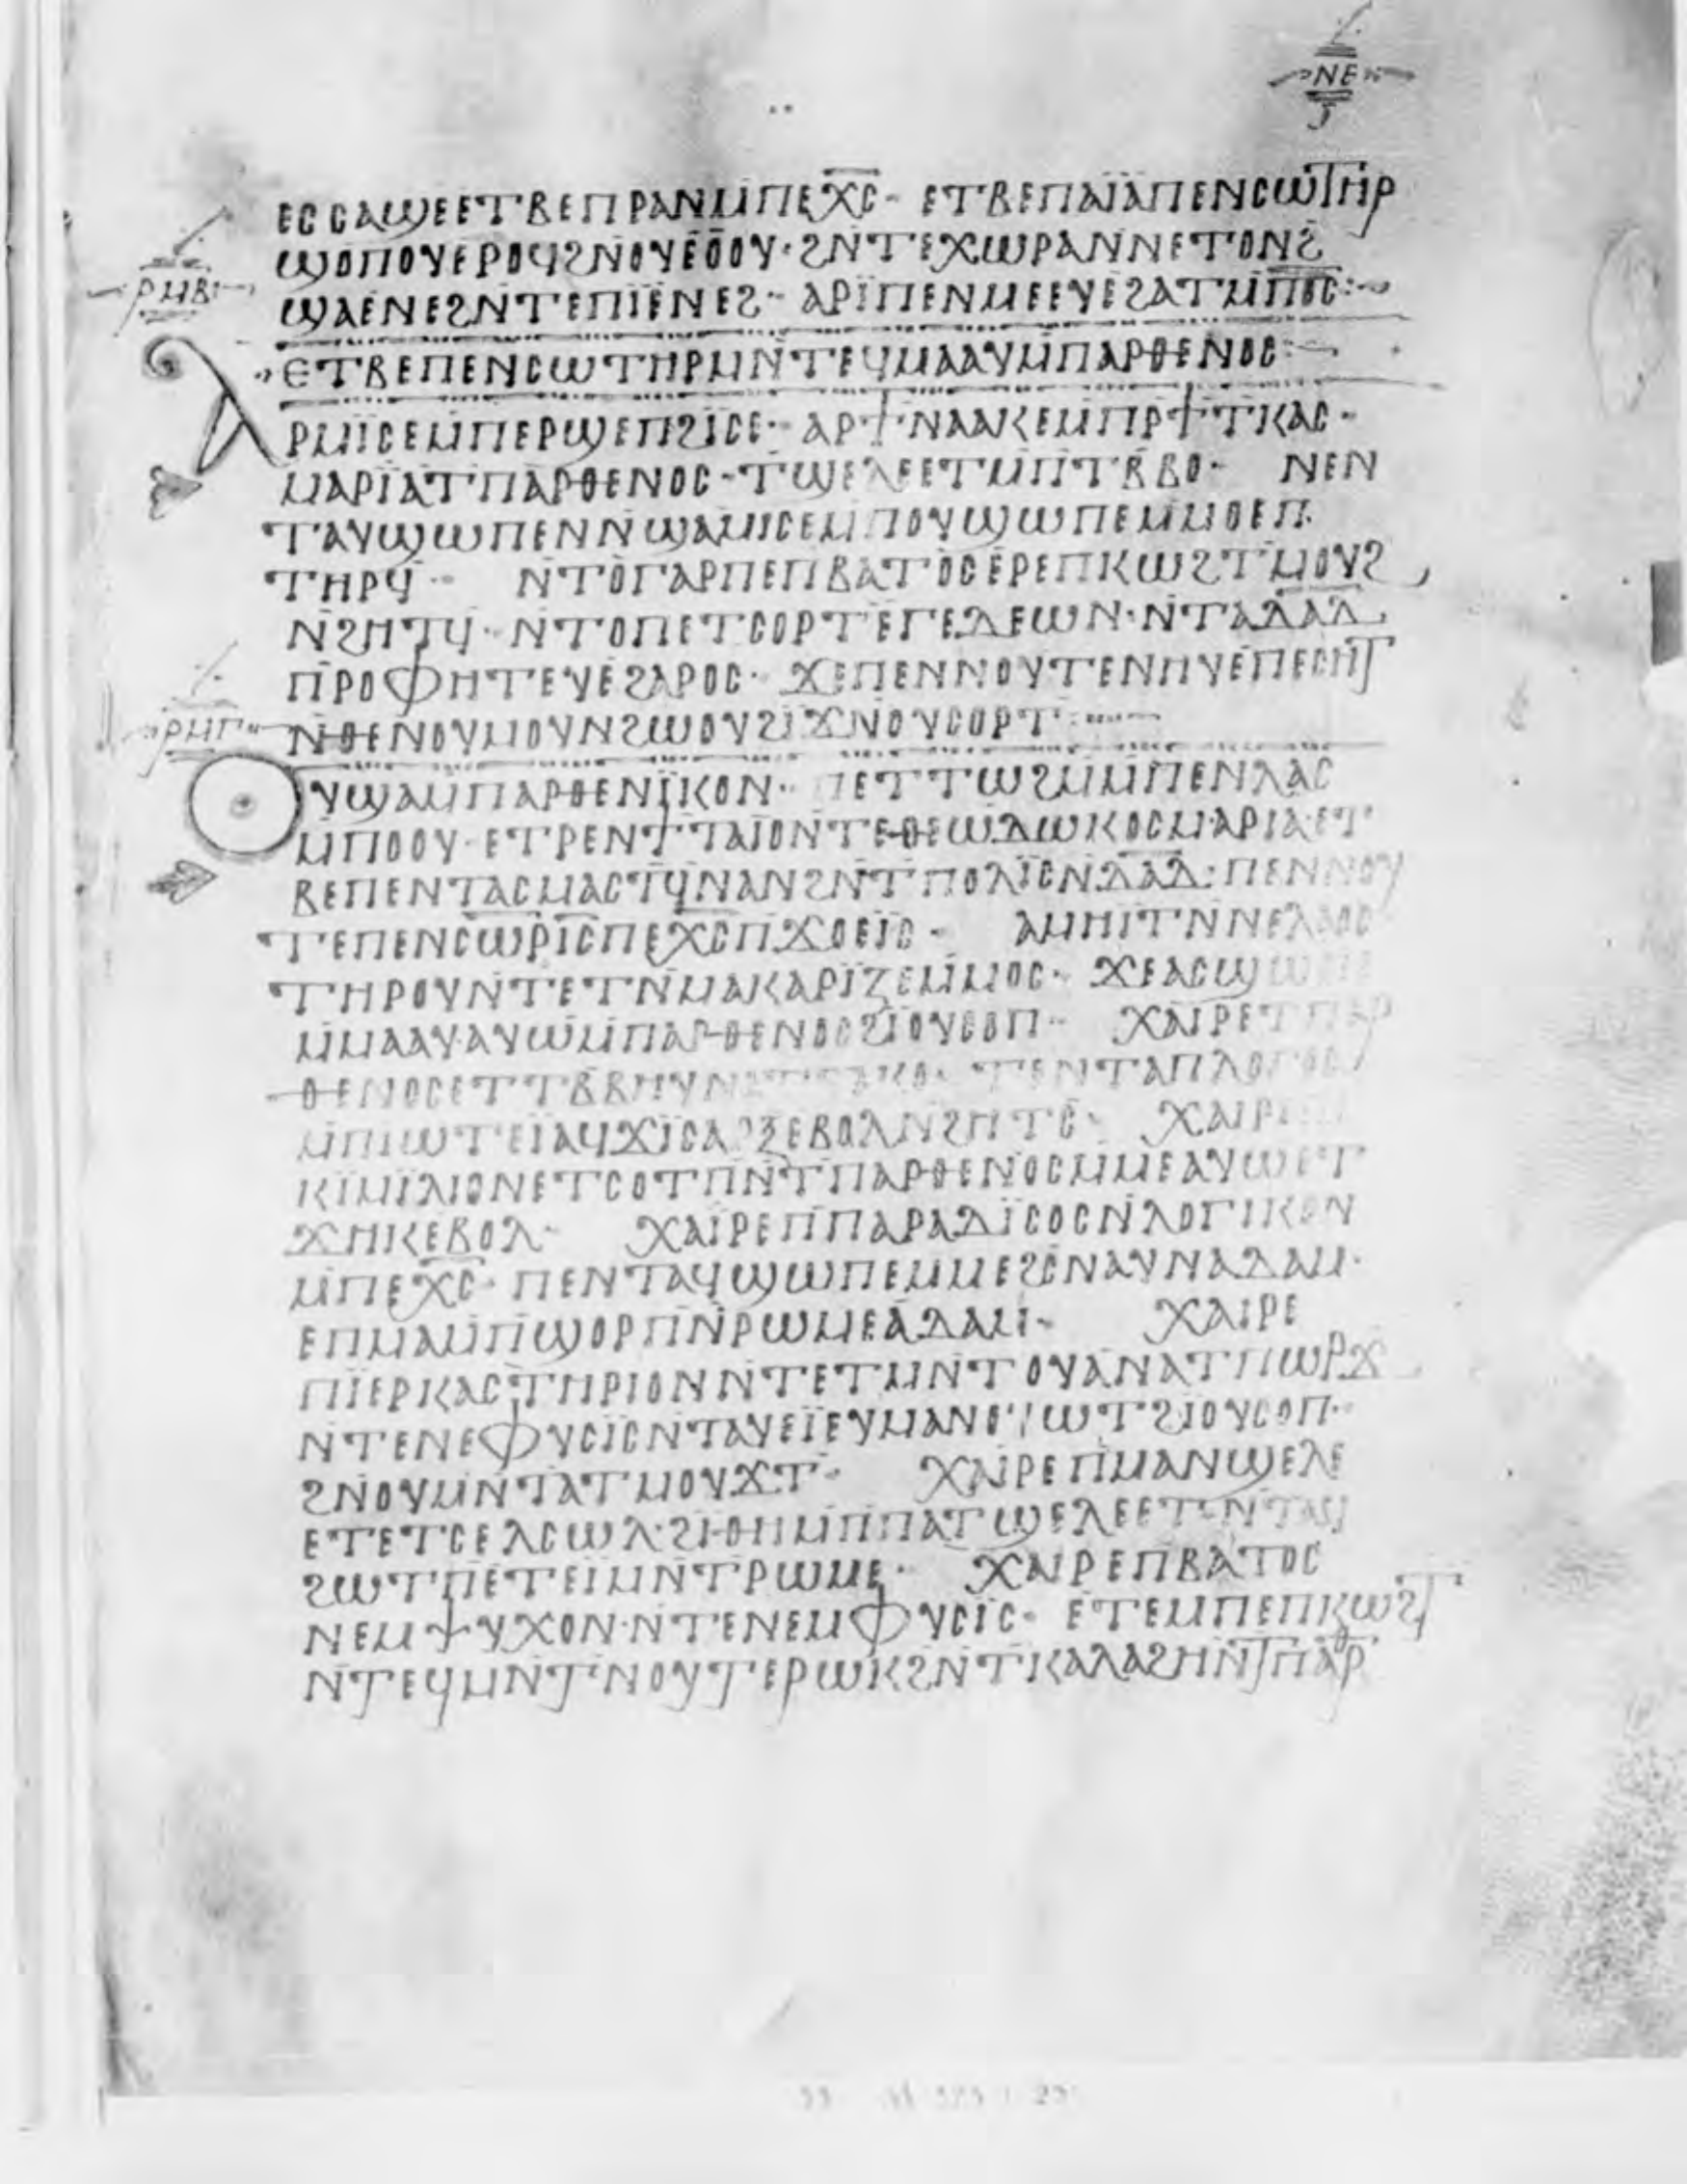 ⲛⲉ
ⲉⲥⲥⲁϣⲉⲉⲧⲃⲉⲡⲣⲁⲛⲙ̄ⲡⲉⲭ̄ⲥ̄· ⲉⲧⲃⲉⲡⲁⲓ̈ⲁ̇ⲡⲉⲛⲥⲱⲧⲏⲣ
ϣⲟⲡⲟⲩⲉⲣⲟϥϩⲛ̄ⲟⲩⲉ̇ⲟ̇ⲟⲩ· ϩⲛ̄ⲧⲉⲭⲱⲣⲁⲛⲛⲉⲧⲟⲛϩ̄
ⲣⲙⲃ
ϣⲁⲉ̇ⲛⲉϩⲛ̄ⲧⲉⲡⲓ̈ⲉ̇ⲛⲉϩ· ⲁⲣⲓ̈ⲡⲉⲛⲙⲉⲉⲩⲉ̇ϩⲁⲧⲙ̄ⲡ̅ⲟ̅ⲥ̅:
ⲉⲧⲃⲉⲡⲉⲛⲥⲱⲧⲏⲣⲙⲛ̄ⲧⲉϥⲙⲁⲁⲩⲙ̄ⲡⲁⲣⲑⲉⲛⲟⲥ:
ⲁⲣⲙⲓ̈ⲥⲉⲙ̄ⲡⲉⲣϣⲉⲡϩⲓ̈ⲥⲉ· ⲁⲣϯⲛⲁⲁⲕⲉⲙ̄ⲡⲣ̄ϯⲧⲕⲁⲥ·
ⲙⲁⲣⲓ̈ⲁⲧⲡⲁⲣⲑⲉⲛⲟⲥ· ⲧϣⲉⲗⲉⲉⲧⲙ̄ⲡⲧⲃ̄ⲃⲟ· ⲛⲉⲛ
ⲧⲁⲩϣⲱⲡⲉⲛⲛ̄ϣⲁⲙⲓⲥⲉⲙ̄ⲡⲟⲩϣⲱⲡⲉⲙ̄ⲙⲟⲉⲡ
ⲧⲏⲣϥ· ⲛ̄ⲧⲟ̇ⲅⲁⲣⲡⲉⲡⲃⲁⲧⲟⲥⲉ̇ⲣⲉⲡⲕⲱϩⲧⲙⲟⲩϩ
ⲛ̄ϩⲏⲧϥ· ⲛ̄ⲧⲟⲡⲉⲧⲥⲟⲣⲧⲉ̇ⲅⲉⲇⲉⲱⲛ· ⲛ̄ⲧⲁⲇ̅ⲁ̅ⲇ̅
ⲡⲣⲟⲫⲏⲧⲉⲩⲉ̇ϩⲁⲣⲟⲥ· ϫⲉⲡⲉⲛⲛⲟⲩⲧⲉⲛⲏⲩⲉ̇ⲡⲉⲥⲏⲧ
ⲛ̄ⲑⲉⲛⲟⲩⲙⲟⲩⲛϩⲱⲟⲩϩⲓϫⲛ̄ⲟⲩⲥⲟⲣⲧ:
ⲣⲙⲅ
ⲟⲩϣⲁⲙ̄ⲡⲁⲣⲑⲉⲛⲓ̈ⲕⲟⲛ· ⲡⲉⲧⲧⲱϩⲙ̄ⲙ̄ⲡⲉⲛⲗⲁⲥ
ⲙ̄ⲡⲟⲟⲩ· ⲉⲧⲣⲉⲛϯⲧⲁⲓ̈ⲟⲛ̄ⲧⲉⲑⲉⲱ̇ⲇⲱⲕⲟⲥⲙⲁⲣⲓⲁ·ⲉⲧ
ⲃⲉⲡⲉⲛⲧⲁⲥⲙⲁⲥⲧϥ̄ⲛⲁⲛϩⲛ̄ⲧⲡⲟⲗⲓ̈ⲥⲛ̄ⲇ̅ⲁ̅ⲇ̅: ⲡⲉⲛⲛⲟⲩ
ⲧⲉⲡⲉⲛⲥ̅ⲱ̅ⲣ̅ⲓ̅ⲥ̅ⲡⲉⲭ̅ⲥ̅ⲡϫⲟⲉⲓ̈ⲥ· ⲁⲙⲏⲓ̈ⲧⲛ̄ⲛⲉⲗⲁⲟⲥ
ⲧⲏⲣⲟⲩⲛ̄ⲧⲉⲧⲛ̄ⲙⲁⲕⲁⲣⲓ̈ⲍⲉⲙ̄ⲙⲟⲥ· ϫⲉⲁⲥ
ⲙ̄ⲙⲁⲁⲩ·ⲁⲩⲱⲙ̄ⲡⲁⲣⲑⲉⲛⲟⲥϩⲓ̈ⲟⲩⲥⲟⲡ· ⲭⲁⲓ̈ⲣⲉⲧⲡⲁⲣ
ⲑⲉⲛⲟⲥⲉⲧⲧⲃ̄ⲃⲏⲩ ⲧⲉⲛⲧⲁⲡⲗⲟⲅⲟⲥ
ⲙ̄ⲡⲓⲱⲧⲉⲓ̈ⲁϥϫⲓ̈ⲥⲁⲣⲝⲉⲃⲟⲗⲛ̄ϩⲏⲧⲥ̄· ⲭⲁⲓⲣⲉ
ⲕⲓ̈ⲙⲓ̈ⲗⲓⲟⲛⲉⲧⲥⲟⲧⲡ̄ⲛ̄ⲧⲡⲁⲣⲑⲉⲛⲟⲥⲙ̄ⲙⲉⲁⲩⲱⲉⲧ
ϫⲏⲕⲉⲃⲟⲗ· ⲭⲁⲓ̈ⲣⲉⲡⲡⲁⲣⲁⲇⲓ̈ⲥⲟⲥⲛ̄ⲗⲟⲅⲓⲕⲟⲛ
ⲙ̄ⲡⲉⲭ̅ⲥ̅· ⲡⲉⲛⲧⲁϥϣⲱⲡⲉⲙ̄ⲙⲉϩⲥⲛⲁⲩⲛⲁⲇⲁⲙ·
ⲉⲡⲙⲁⲙ̄ⲡϣⲟⲣⲡⲛ̄ⲣⲱⲙⲉⲁ̇ⲇⲁⲙ· ⲭⲁⲓⲣⲉ
ⲡⲓ̈ⲉⲣⲕⲁⲥⲧⲏⲣⲓⲟⲛⲛ̄ⲧⲉⲧⲙⲛ̄ⲧⲟⲩⲁⲛⲁⲧⲡⲱⲣϫ
ⲛ̄ⲧⲉⲛⲉⲫⲩⲥⲓ̈ⲥⲛ̄ⲧⲁⲩⲉⲓ̈ⲉⲩⲙⲁⲛϩⲱⲧⲡϩⲓ̈ⲟⲩⲥⲟⲡ·
ϩⲛ̄ⲟⲩⲙⲛ̄ⲧⲁⲧⲙⲟⲩϫⲧ· ⲭⲁⲓ̈ⲣⲉⲡⲙⲁⲛϣⲉⲗⲉ
ⲉⲧⲉⲧⲥⲉⲗⲥⲱⲗ·ϩⲓⲑⲏⲙ̄ⲡⲡⲁⲧϣⲉⲗⲉⲉⲧ·ⲛ̄ⲧⲁϥ
ϩⲱⲧⲡ̄ⲉⲧⲉⲓⲙⲛ̄ⲧⲣⲱⲙⲉ· ⲭⲁⲓⲣⲉⲡⲃⲁⲧⲟⲥ
ⲛⲉⲙⲯⲩⲭⲟⲛ·ⲛ̄ⲧⲉⲛⲉⲙⲫⲩⲥⲓ̈ⲥ· ⲉⲧⲉⲙⲡⲉⲡⲕⲱϩⲧ
ⲛ̄ⲧⲉϥⲙⲛ̄ⲧⲛⲟⲩⲧⲉⲣⲱⲕϩⲛ̄ⲧⲕⲁⲗⲁϩⲏⲛ̄ⲧⲡⲁⲣ